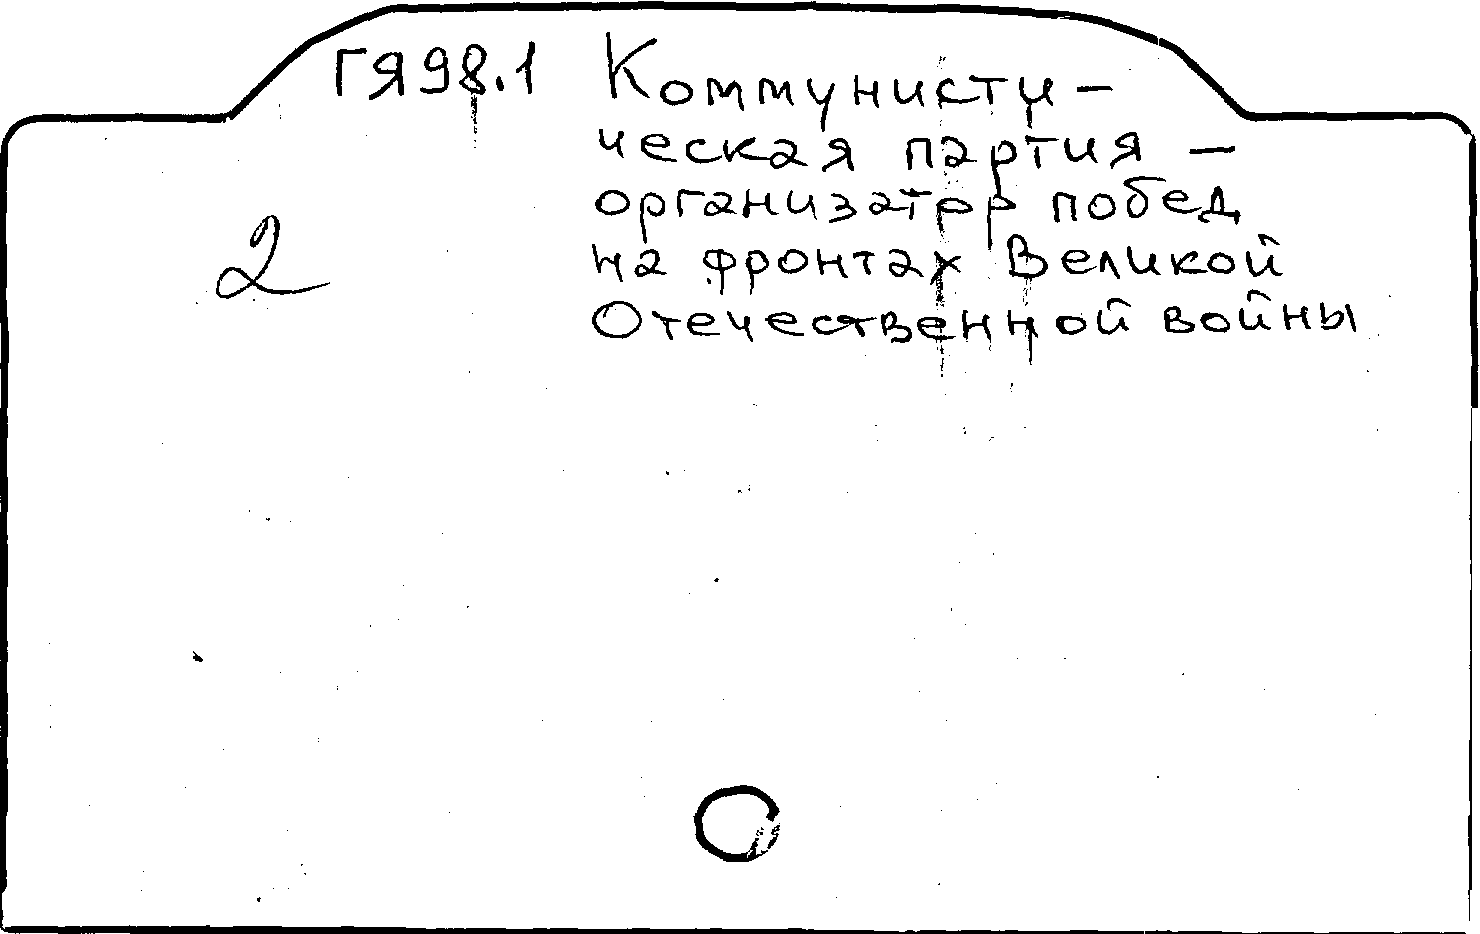 ГЯ98.1 Коммунисти-
ческая партия -
организатор побед
на фронтах Великой
Отечественной войны
2